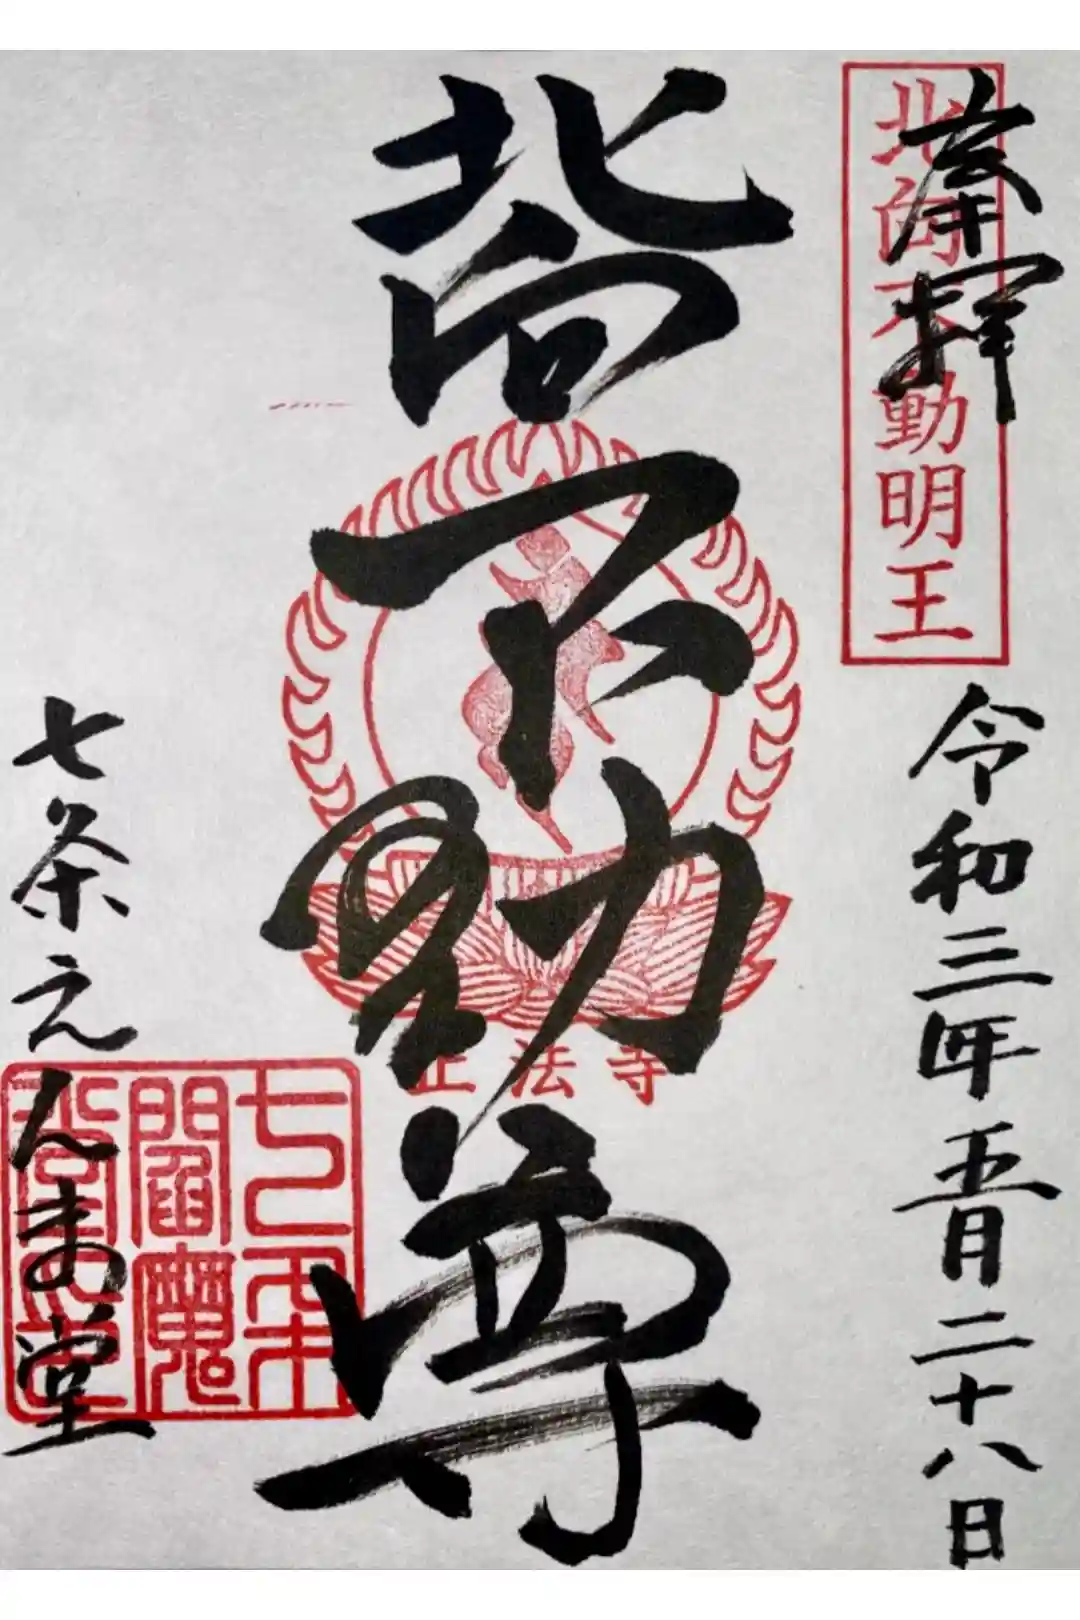 奉拝
北向不動明王
令和三年五月二十八日
北向不動尊
正法寺
七条えんま堂
七条
閻魔
堂印